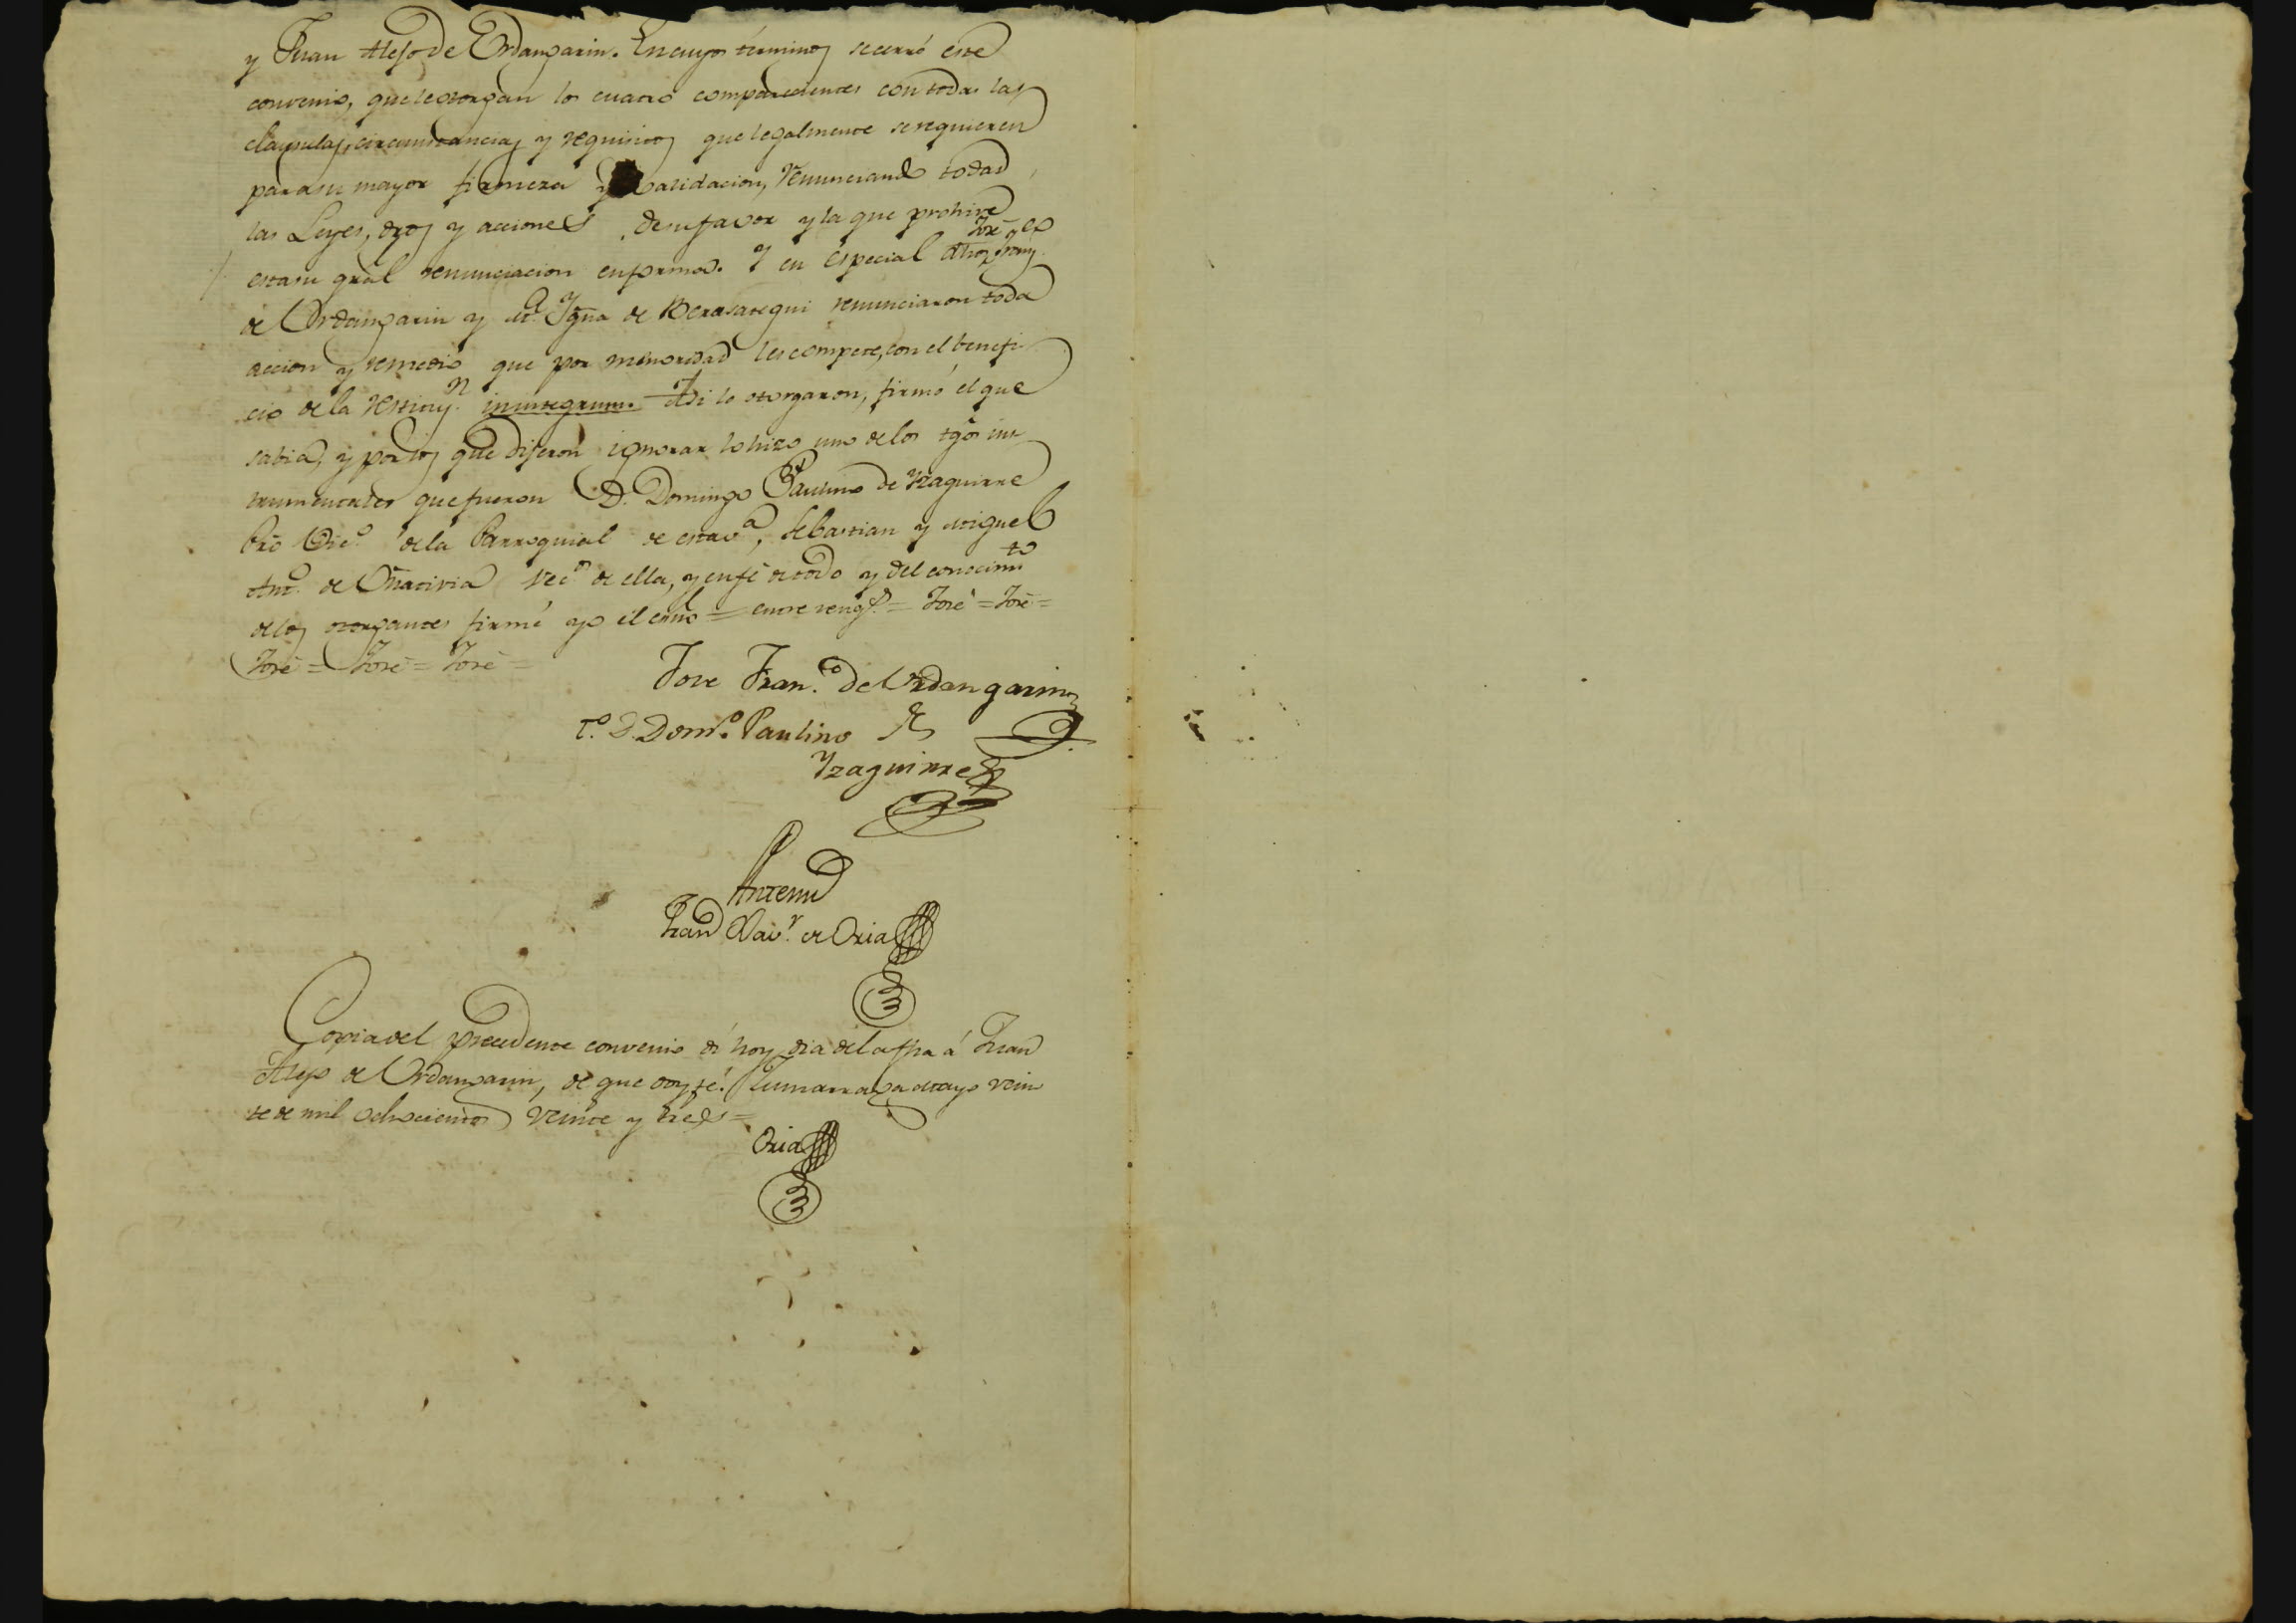 y Juan Alejo de Urdangarin. En cuyos términos se cerró este
convenio, que le otorgan los cuatro comparecientes con todas las
clausulas, circunstancias y requisitos que legalmente se requieren
para su mayor firmeza y validacion, renunciando todas
las Leyes, dros y acciones de su favor y la que prohive
esta su gral renunciacion en forma. Y en especial José Franco
de Urdangarin y Ma. Igna de Berasategui renunciaron toda
accion y remedio que por menoridad les compete, con el benefi
cio de la restitun. in integrum. Asi lo otorgaron, firmó el que
sabia, y por los que dijeron ignorar lo hizo uno de los tgos ins
trumentales que fueron D. Domingo Paulino de Yzaguirre
Pro Bfic.o de la Parroquial de esta va, Sebastian y Miguel
Anto. de Oñativia vecs de ella, y en fé de todo y del conocimto
de los otorgantes firmé yo el esno = entre rengs. = José = José =
José = José = José =
Jose Fran.co de Urdangarin
T.o D. Dom.o Paulino de
Yzaguirre
Antemi
Juan Xavr. de Oria
Copia del precedente convenio dí hoy dia de la fha á Juan
Alejo de Urdangarin, de que doy fé. Zumarraga Mayo vein
te de mil ochocientos veinte y tres =
Oria